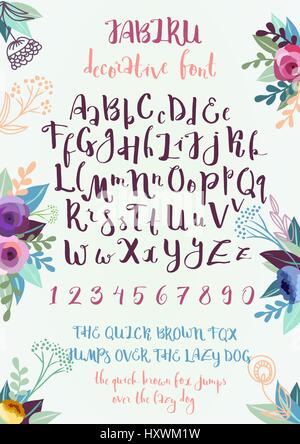 JABIRU
decorative font
AaBbCcDdEe
FfGgHhIiJj
KkLlMmnOoPpQq
RrSsTtUuVv
WwXxYyZz
1 2 3 4 5 6 7 8 9 0
THE QUICK BROWN FOX
JUMPS OVER THE LAZY DOG
the quick brown fox jumps
over the lazy dog
alamy
Image ID: HXWM1W
www.alamy.com